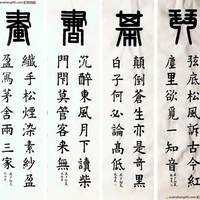 琴
弦底松風訴古今紅
塵里欲覓一知音
棊
顛倒蒼生亦是奇黑
白子何必論高低
書
沉醉東風月下讀柴
門閉莫管客來無
畫
纖手松煙染素紗盈
盈寫茅舍兩三家